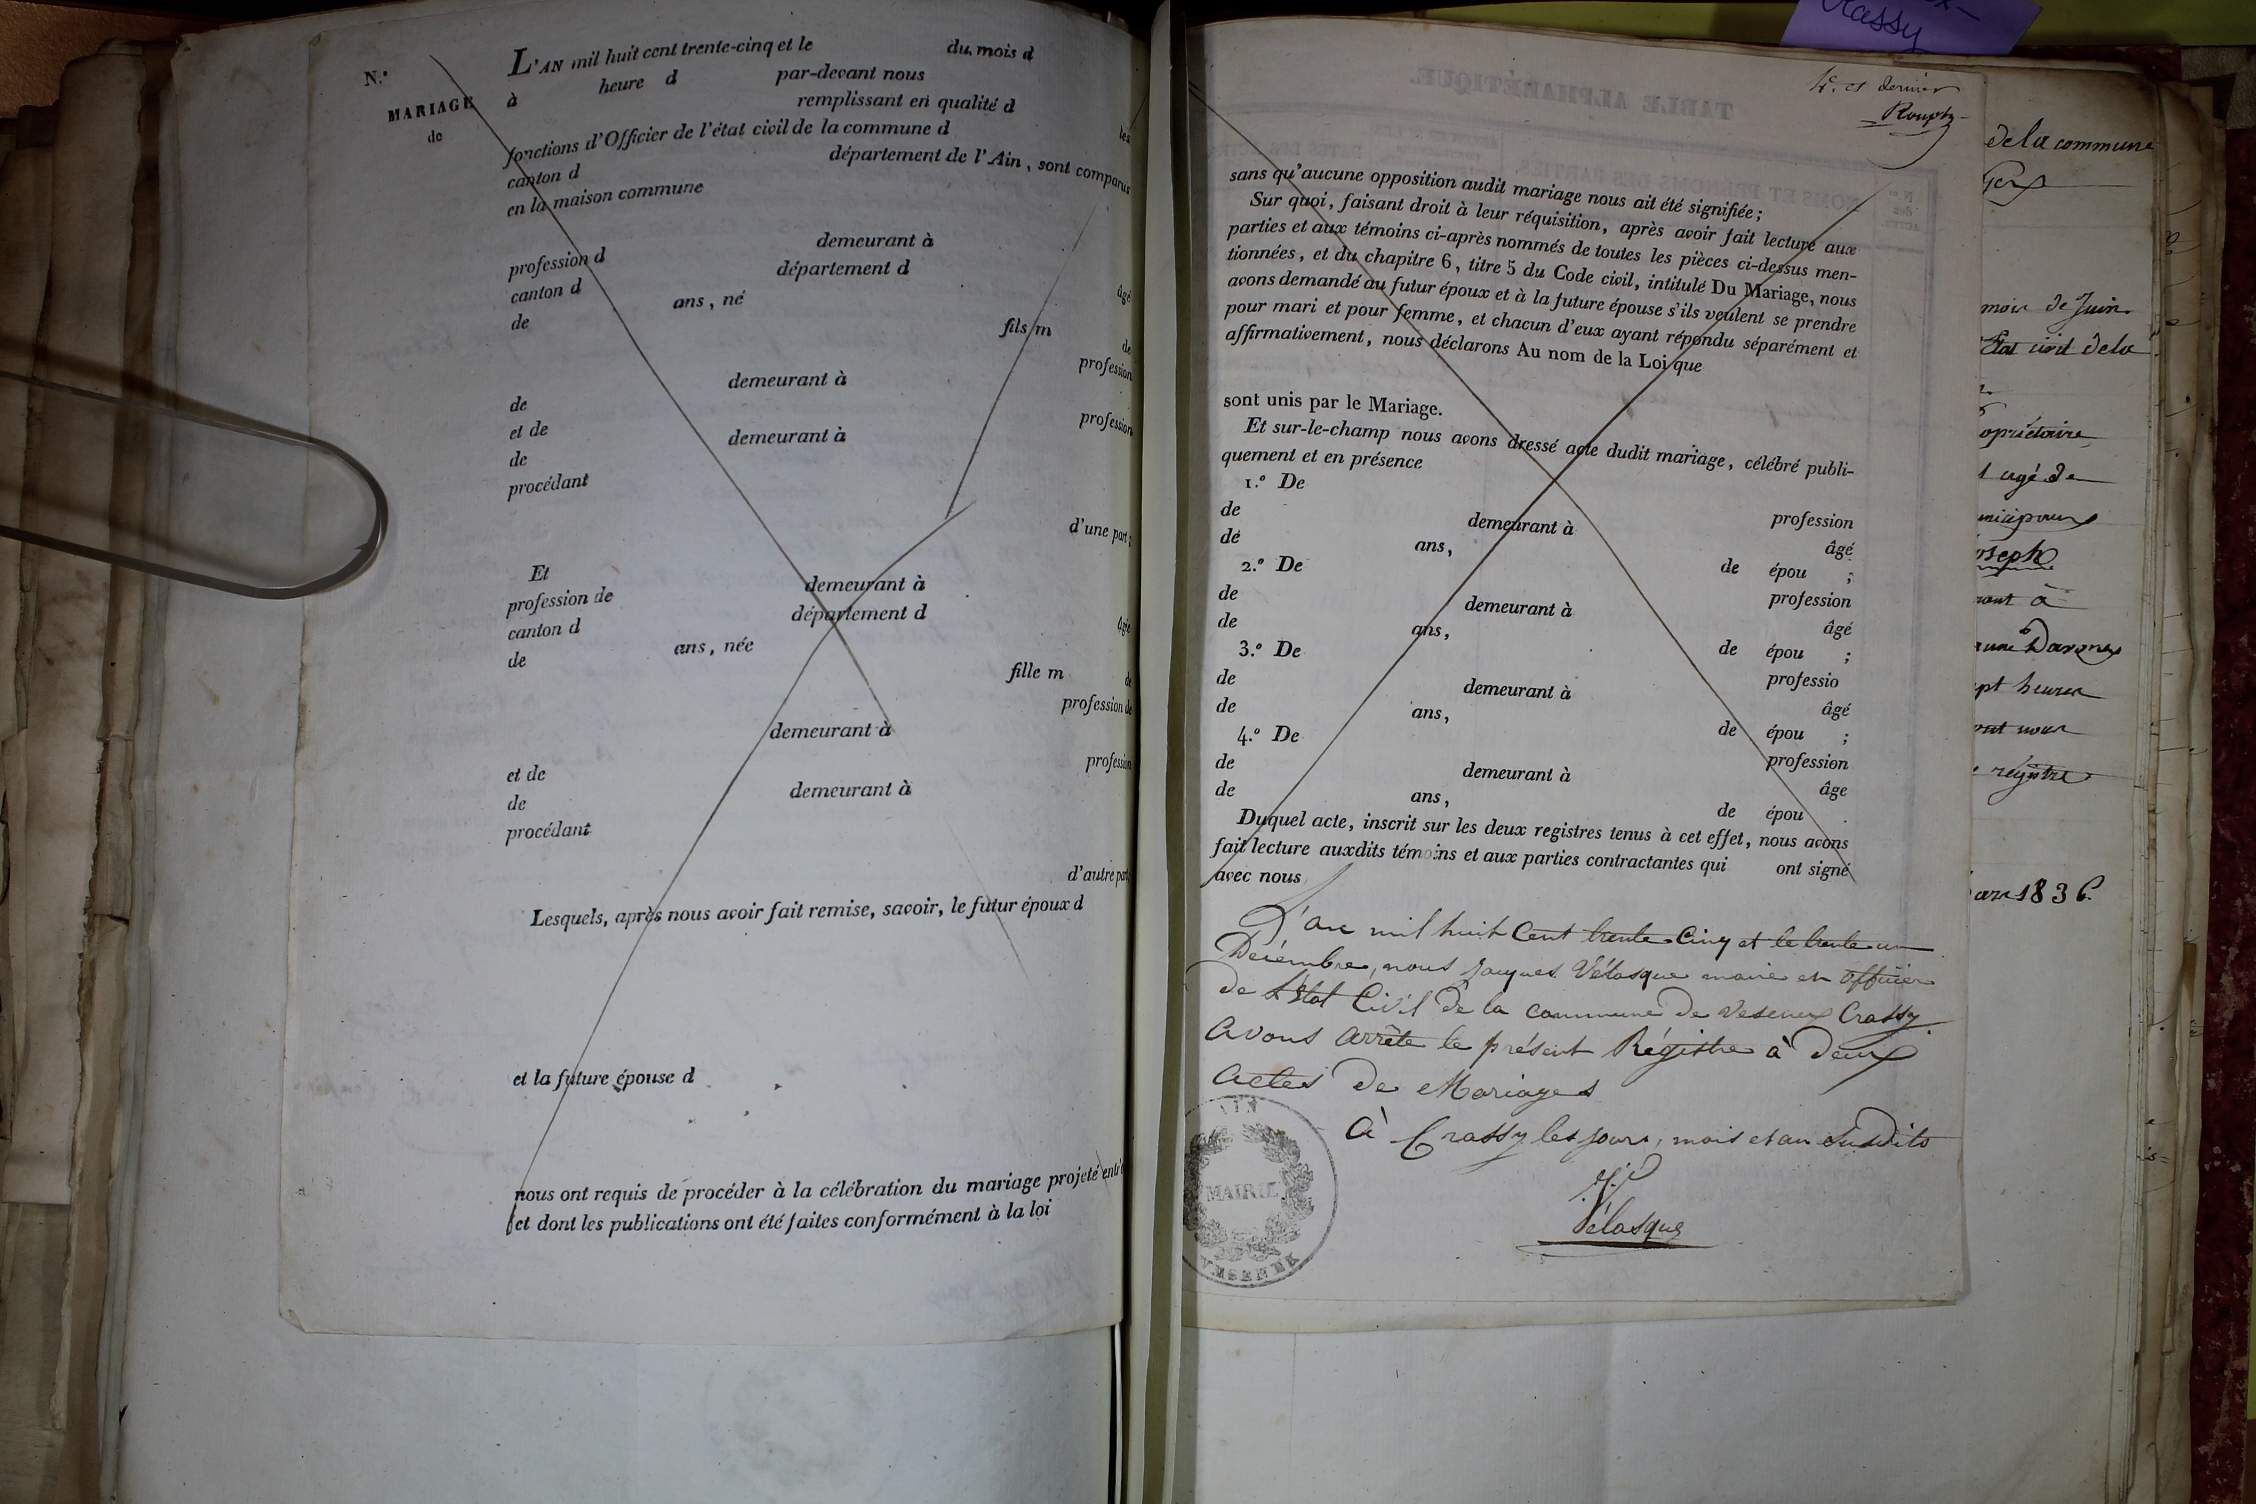 N.º
MARIAGE
de
L'AN mil huit cent trente-cinq et le du mois d
à heure d par-devant nous
remplissant en qualité d les
fonctions d'Officier de l'état civil de la commune d
canton d département de l'Ain, sont comparus
en la maison commune
demeurant à
profession d département d
canton d âgé
de ans, né
fils m de
profession
de demeurant à
et de profession
de demeurant à
procédant
d'une part;
Et demeurant à
profession de département d
canton d âgée
de ans, née
fille m de
profession de
demeurant à
et de profession
de demeurant à
procédant
d'autre part;
Lesquels, après nous avoir fait remise, savoir, le futur époux d
et la future épouse d
nous ont requis de procéder à la célébration du mariage projeté entr'
et dont les publications ont été faites conformément à la loi
Crassy
4.e et dernier
sans qu'aucune opposition audit mariage nous ait été signifiée;
Sur quoi, faisant droit à leur réquisition, après avoir fait lecture aux
parties et aux témoins ci-après nommés de toutes les pièces ci-dessus men-
tionnées, et du chapitre 6, titre 5 du Code civil, intitulé Du Mariage, nous
avons demandé au futur époux et à la future épouse s'ils veulent se prendre
pour mari et pour femme, et chacun d'eux ayant répondu séparément et
affirmativement, nous déclarons Au nom de la Loi que
sont unis par le Mariage.
Et sur-le-champ nous avons dressé acte dudit mariage, célébré publi-
quement et en présence
1.º De
de demeurant à profession
de ans, âgé
2.º De de épou ;
de demeurant à profession
de ans, âgé
3.º De de épou ;
de demeurant à professio
de ans, âgé
4.º De de épou ;
de demeurant à profession
de ans, âge
de épou .
Duquel acte, inscrit sur les deux registres tenus à cet effet, nous avons
fait lecture auxdits témoins et aux parties contractantes qui ont signé
avec nous
L'an mil huit Cent trente Cinq et le trente un
Décembre, nous Jacques Vélasque maire et officier
de L'Etat Civil de la commune de Vesenex Crassy
Avons arrête le présent Régistre à deux
actes de Mariages
à Crassy les jours, mois et an Susdits
Vélasque
AIN
MAIRIE
VESENEX
de la commune
Gex
mois de Juin
Etat civil de la
opriétaire
agé de
oseph
à
heures
nous
régistre
an 1836.